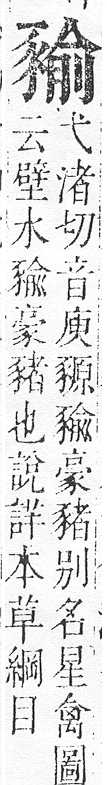 貐
弋渚切音庾豲貐豪豬別名星禽圖
云壁水貐豪豬也說詳本草綱目